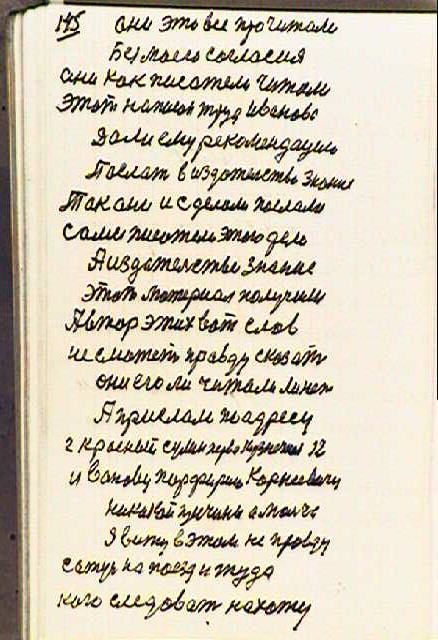 145 они это все прочитали
Без моего согласия
они как писатели читали
этот написал труд иванова
дали ему рекомендацию
Послат в издателство Знание
Так они и сделали послали
сами писатель этого дела
А издателстве Знание
этот материал получили
Автор этих вот слов
не сможеть правду сказать
они его ли читали ли нет
А прислали по адресу
г красный сулин 12
иванову порфирию Корнеевичу
никакой причини а молча
Я вижу в этом не правду
сажус на поезд и туда
кого следоват нахожу